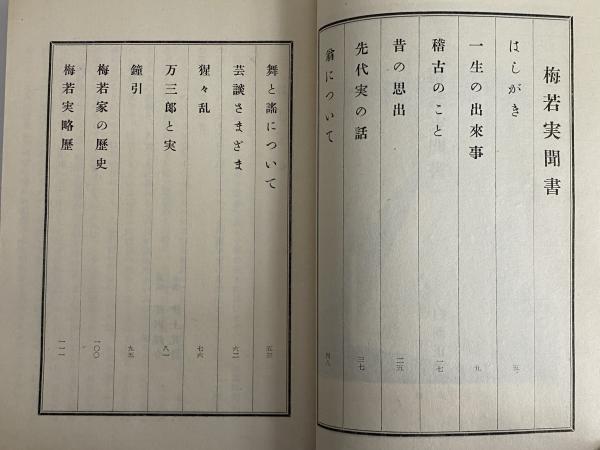 梅若実聞書
はしがき 五
一生の出來事 九
稽古のこと 一七
昔の思出 二五
先代実の話 三七
翁について 四八
舞と謠について 五三
芸談さまざま 六二
猩々乱 七六
万三郎と実 八一
鐘引 九五
梅若家の歴史 一〇〇
梅若実略歴 一一一